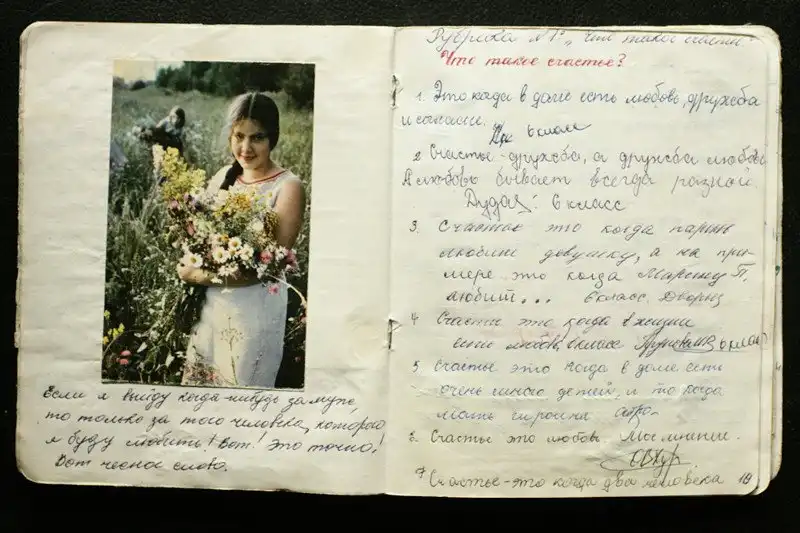 Если я выйду когда-нибудь замуж,
то только за того человека, которого
я буду любить! Вот! Это точно!
Вот чесное слово.
Рубрика №1 „Что такое счастье
Что такое счастье?
1. Это когда в доме есть любовь, дружба
и согласие.
6 класс
2. Счастье - дружба, а дружба любовь
А любовь бывает всегда разной.
6 класс
3. Счастье это когда парень
любит девушку, а на при-
мере это когда Марину П.
любит... 6 класс Дворец
4 Счастье это когда в жизни
есть любовь, 6 класс 6 класс
5. Счастье это когда в доме есть
очень много детей, и то когда
мать героиня
6. Счастье это любовь. Мое мнение.
7 Счастье - это когда два человека 10